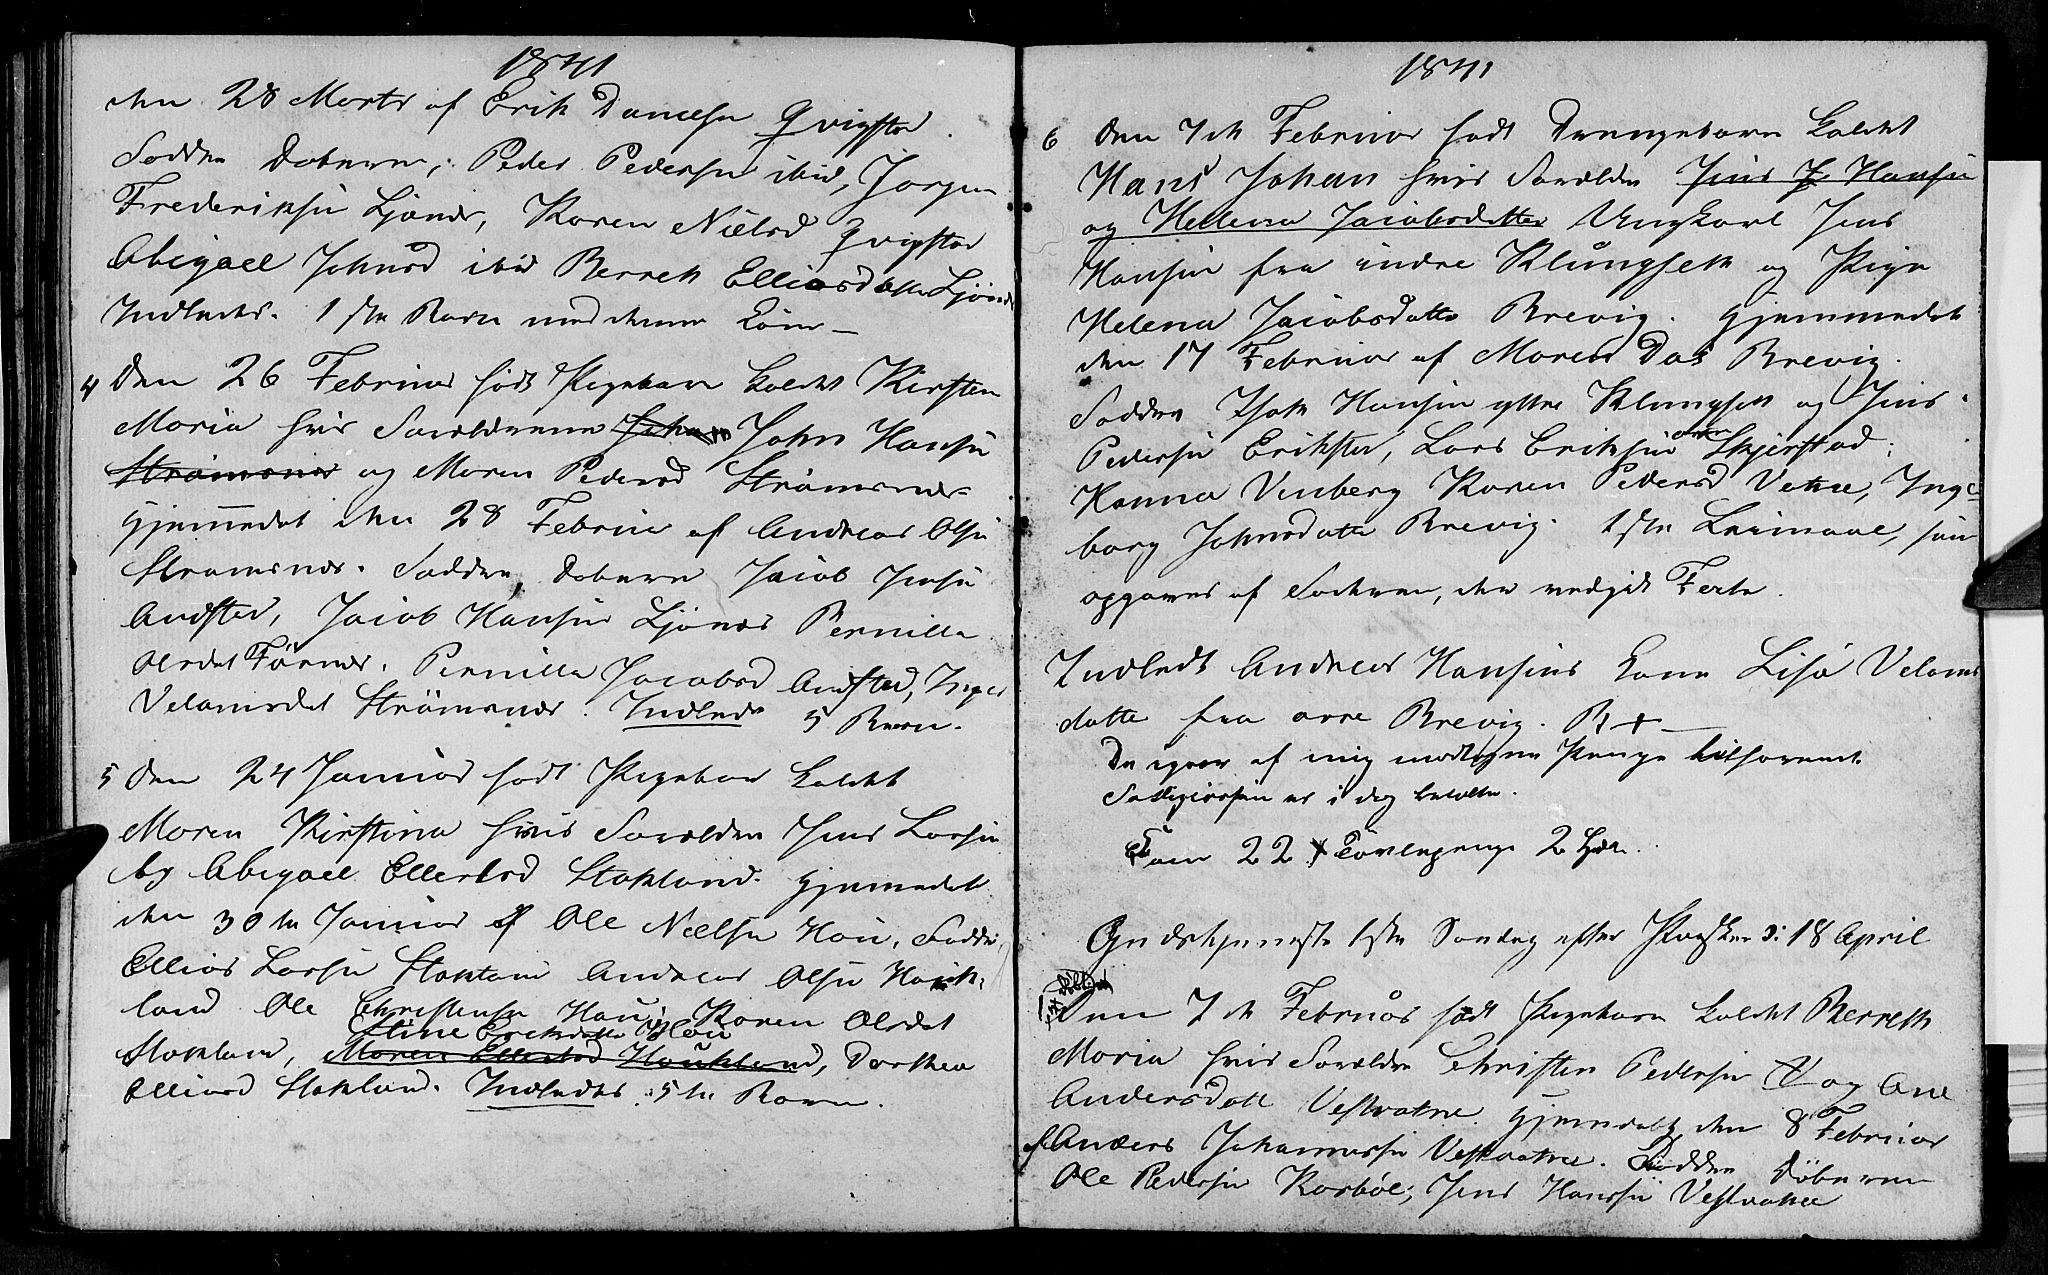 1841
den 28 Marts af Erik Danielsen Qvigstad.
Fadder Daberen, Peder Pedersen ibid, Jørgen
Frederiksen Ljønes, Karen Nielsd Qvigstad
Abigael Johnsd ibid Berreth Elliasdatter Ljønes
Indledes. 1ste Barn med denne Kone —
4 Den 26 Februar født Pigebarn kaldet Kirsten
Maria hvis Forældrene John Hansen
Strømsnes og Maren Pedersd Strømsnes
Hjemmedøbt den 28 Februar af Andreas Olsen
Strømsnes. Fadder Daberen Jacob Jensen
Andsted, Jacob Hansen Ljønes Pernilla
Olsdat Førnes. Pernilla Jacobsd Andsted, Inger
Velamsdat Strømsnes. Indledes 5 Barn.
5 Den 24 Januar født Pigebarn kaldet
Maren Kirstina hvis Forældre Jens Larsen
og Abigael Ellertsd Stokland. Hjemmedøbt
den 30te Januar af Ole Nielsen Hou, Fadder
Ellias Larsen Stokland Andreas Olsen Houk-
land Ole Christensen Hou; Karen Olsdat
Stine Eriksdatter Hou
Stokland, Maren Ellertsd Houkland, Dorthea
Elliasd Stokland. Indledes 5te Barn.
1841
6 Den 7de Februar født Drengebarn kaldet
Hans Johan hvis Forældre Jens J Hansen
og Helena Jacobsdatter Ungkarl Jens
Hansen fra indre Klungseth og Pige
Helena Jacobsdatter Brevig. Hjemmedøbt
den 17 Februar af Marcus Das Brevig.
Fadder Isak Hansen ytre Klungseth og Jens
Pedersen Erikstad, Lars Eriksen øvre Skjerstad;
Hanna Vinberg Karen Pedersd Vatne, Inge-
borg Johnsdatter Brevig. 1ste Leiermaal, som
opgaves af Faderen, der vedgik Forh.
Indledt Andreas Hansens Kone Lisa Velams
datter fra øvre Brevig. B +
De igaar af mig modtagne Penge
er i dag betalte.
22 2
Gudstjeneste 1ste Søndag efter Paaske d: 18 April
Den 7de Februar født Pigebarn kaldet Berreth
Maria hvis Forældre Christen Pedersen V og Ane
Andersdatt Vestvatne Hjemdøbt den 8 Februar
af Anders Johannessen Vestvatne. Fadder Døberen
Ole Pedersen Kosbøe; Jens Hanssen Vestvatne